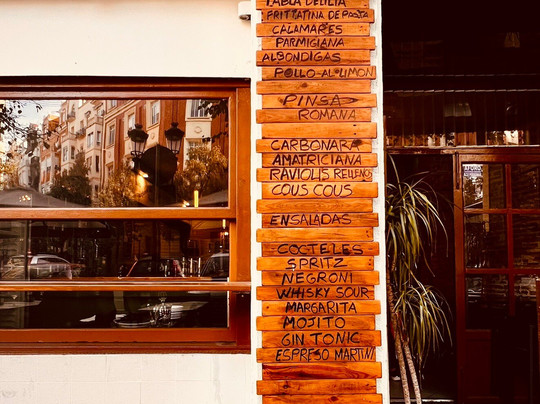 TABLA DELILIA
FRITTATINA DE PASTA
CALAMARES
PARMIGIANA
ALBONDIGAS
POLLO-AL-LIMON
PINSA
ROMANA
CARBONARA
AMATRICIANA
RAVIOLIS RELLENO
COUS COUS
ENSALADAS
COCTELES
SPRITZ
NEGRONI
WHISKY SOUR
MARGARITA
MOJITO
GIN TONIC
ESPRESO MARTINI
AFORO